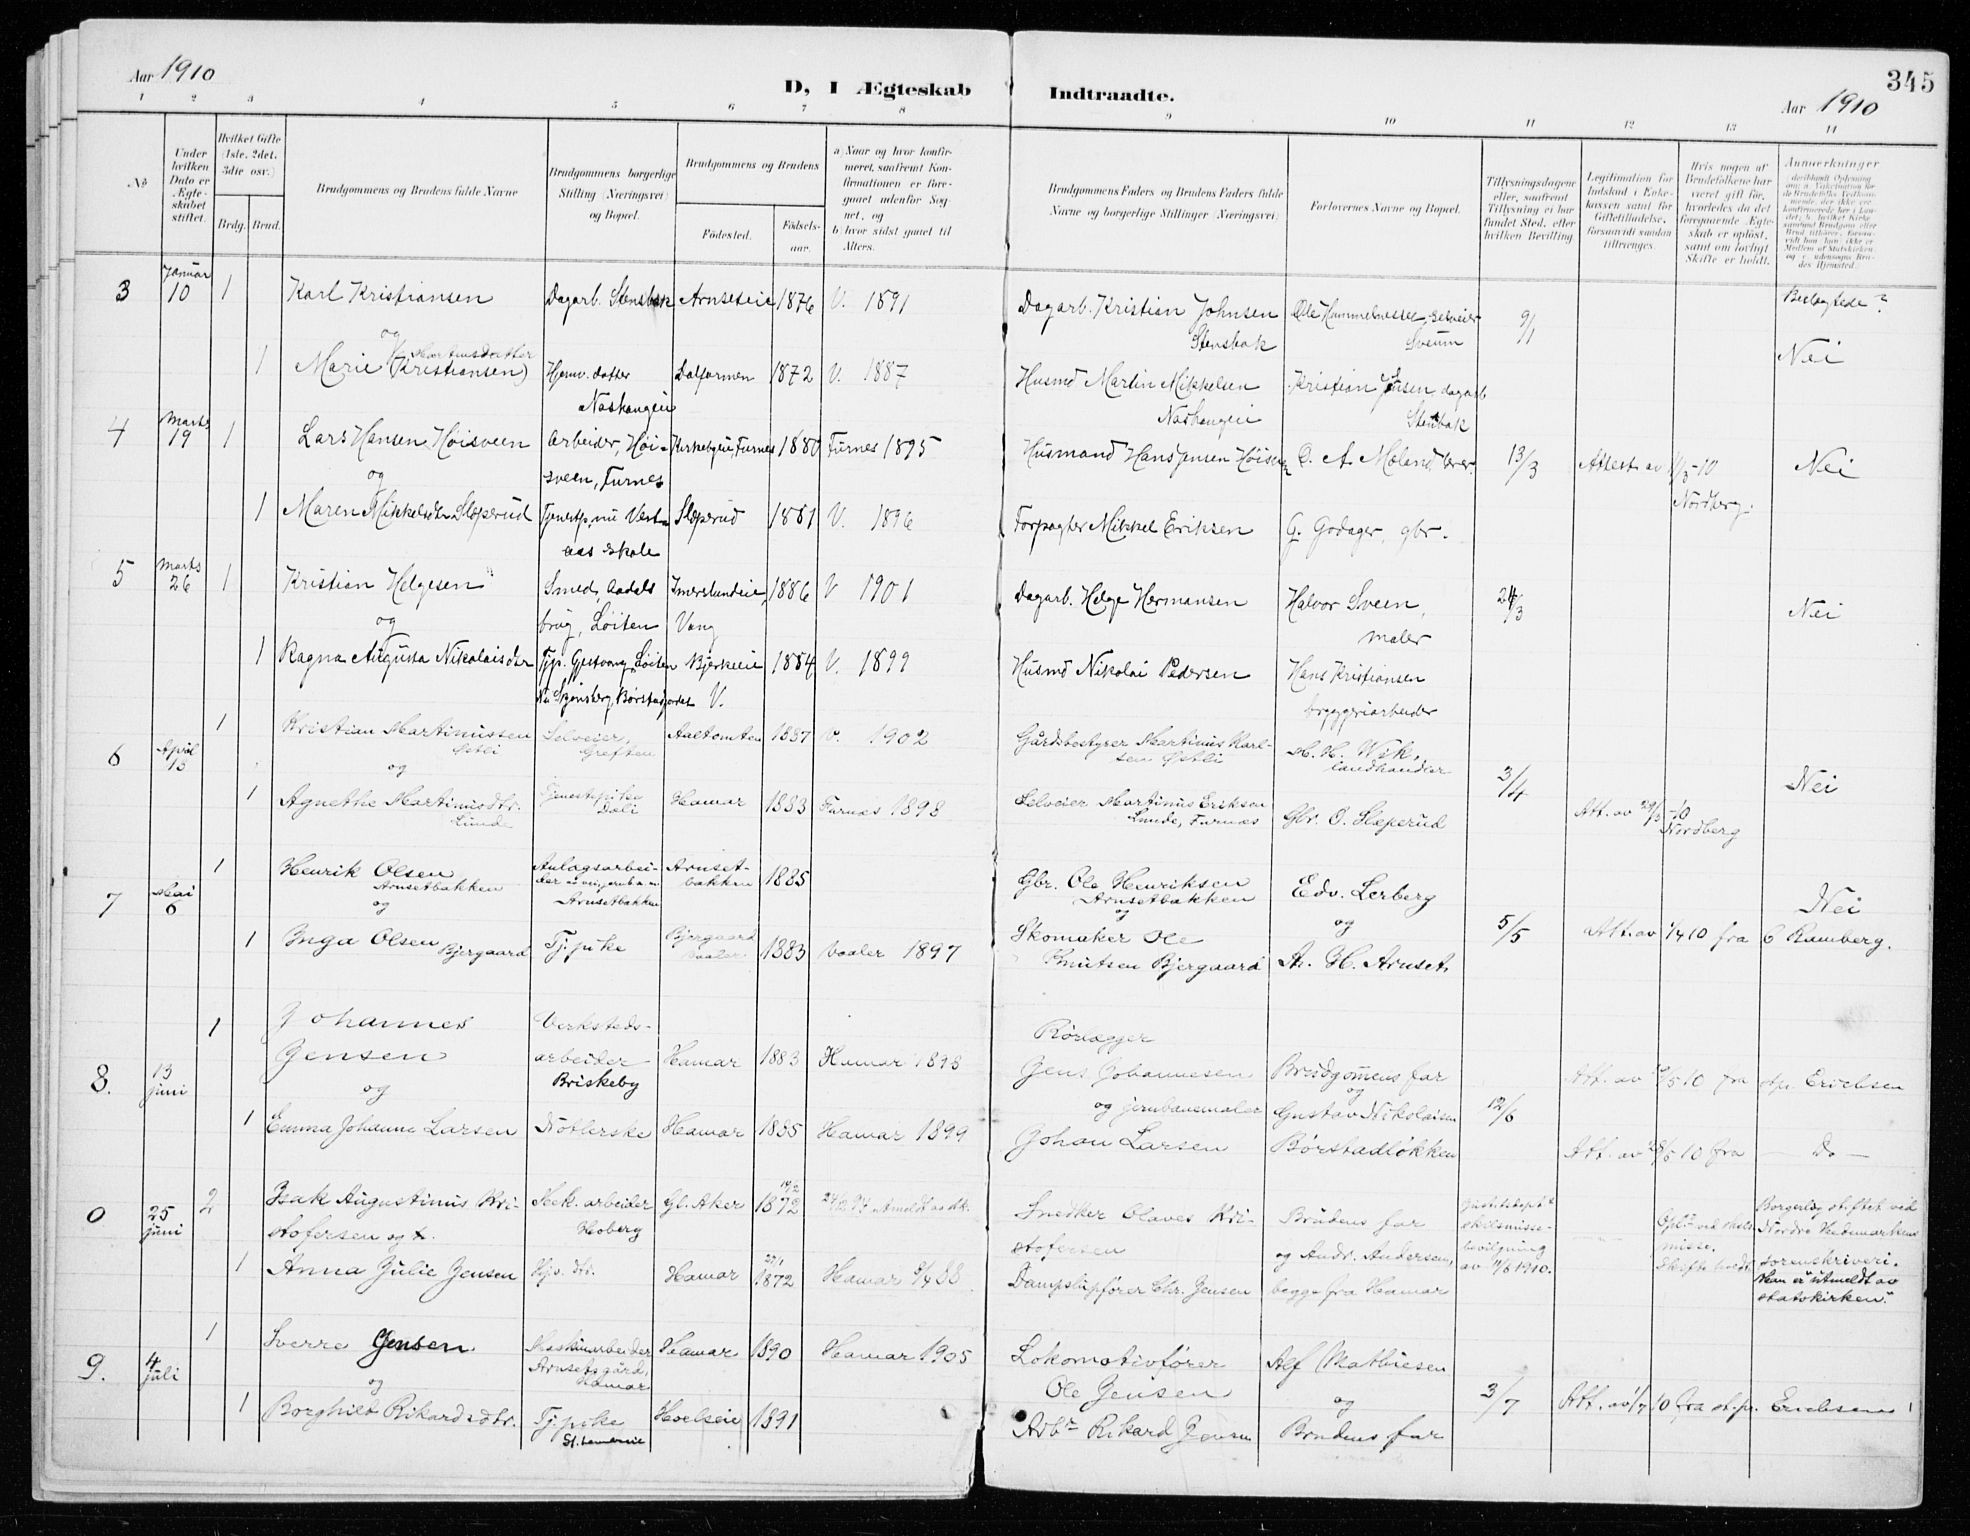 Aar 1910
D, I Ægteskab Indtraadte.
345
Aar 1910
1 2 3 4 5 6 7 8 9 10 11 12 13 14
No
Under hvilken Dato er Ægteskabet stiftet.
Hvilket Gifte (1ste, 2det, 3die osv.)
Brdg. Brud.
Brudgommens og Brudens fulde Navne
Brudgommens borgerlige Stilling (Næringsvei) og Bopæl.
Brudgommens og Brudens
Fødested.
Fødselsaar.
a) Naar og hvor konfirmeret, saafremt Konfirmationen er foregaaet udenfor Sognet, og
b) hvor sidst gaaet til Alters.
Brudgommens Faders og Brudens Faders fulde Navne og borgerlige Stillinger (Næringsvei)
Forlovernes Navne og Bopæl.
Tillysningsdagene eller, saafremt Tillysning ei har fundet Sted, efter hvilken Bevilling
Legitimation for Indskud i Enkekassen samt for Giftetilladelse, forsaavidt saadan tiltrænges.
Hvis nogen af Brudefolkene har været gift før, hvorledes da det foregaaende Ægteskab er opløst, samt om lovligt Skifte er holdt.
Anmerkninger
3 Januar 10 1 Karl Kristiansen Dagarb. Stensbak Arnseteie 1876 V. 1891 Dagarb. Kristian Johnsen Stensbak Ole Hammelnessel, selveier Sveum 9/1 Beslægtede?
og
1 Marie Kristiansen) Martinsdatter Hjemv. datter Nashaugeie Dalfarmen 1872 V. 1887 Husmd Martin Mikkelsen Nashaugeie Kristian Jensen dagarb Stensbak Nei
4 Marts 19 1 Lars Hansen Høisveen Arbeider, Høisveen, Furnes Kirkebyeie, Furnes 1880 Furnes 1895 Husmand Hans Jensen Høisveen O. A. Moland, lærer. 13/3 Attest av 11/3-10 Nordberg. Nei
og
1 Maren Mikkelsdtr Slæperud Tjenestp, nu Vestaas skole Slæperud 1881 V. 1896 Forpagter Mikkel Eriksen G. Godager, gbr.
5 Marts 26 1 Kristian Helgesen Smed, Aadals brug, Løiten Imerslundeie, Vang 1886 V 1901 Dagarb. Helge Hermansen Halvor Sveen, maler 24/3 Nei
og
1 Ragna Augusta Nikolaisdtr Tjp. Gjetvang, Løiten Nu Skjønsberg, Børstadjordet Bjerkeeie V. 1884 V. 1899 Husmd Nikolai Pedersen Hans Kristiansen bryggeriarbeider
6 April 15 1 Kristian Martinussen Østli Selveier, Greften Aaltomten 1887 v. 1902 Gårdsbestyrer Martinus Karlsen Østli M. H. Wik, landhandler 3/4 Nei
og
1 Agnethe Martinusdtr. Lunde Tjenestepike Dæli Hamar 1883 Furnæs 1898 Selveier Martinus Eriksen Lunde, Furnæs Gbr. O. Slæperud Att. av 29/3-10 Nordberg
7 Mai 6 1 Henrik Olsen Arnsetbakken Anlagsarbeider Arnsetbakken Arnsetbakken 1885 Gbr. Ole Henriksen Arnsetbakken Edv. Lerberg Nei
og og og
1 Inga Olsen Bjergaard Tj.pike Bjergaard Vaaler 1883 Vaaler 1897 Skomaker Ole Knutsen Bjergaard A. H. Arnset. 5/5 Att. av 1/4 10 fra C Ramberg.
8. 13 juni 1 Johannes Jensen Verkstedsarbeider Briskeby Hamar 1883 Hamar 1898 Rørlægger Jens Johannesen og jernbanemaler Brudgomens far og 12/6 Att. av /5 10 fra sp. Erichsen
og
1 Emma Johanne Larsen Nätlerske Hamar 1885 Hamar 1899 Johan Larsen Gustav Nikolaisen Børstadløkken Att. av 28/5 10 fra — Do —
0 25 juni 2 Isak Augustinus Kristofersen og x. Mek. arbeider Hoberg Gl. Aker 19/2 1872 utmeldt av stk. Snedker Olaves Kristofersen Brudens far og Andr. Andersen, begge fra Hamar Justitsdept skilsmissebevilgning av 1910. Opl. ved skilsmisse. Skifte holdt Borgerlig stiftet ved Nordre Hedemarkens sorenskriveri. Han er utmeldt av statskirken.
1 Anna Julie Jensen Hjv. dtr. Hamar 27/1 1872 Hamar 8/4 88 Dampskipfører Chr. Jensen
9. 4 juli 1 Sverre Jensen Maskinarbeider Arnsetsgård, Hamar Hamar 1890 Hamar 1905 Lokomotivfører Ole Jensen Alf Mathiesen 3/7 Att. av 1/7 10 fra st.pr. Erichsen
og og
1 Borghild Rikardsdtr. Tj.pike Hoelseie 1891 Arbr Rikard Jensen Brudens far